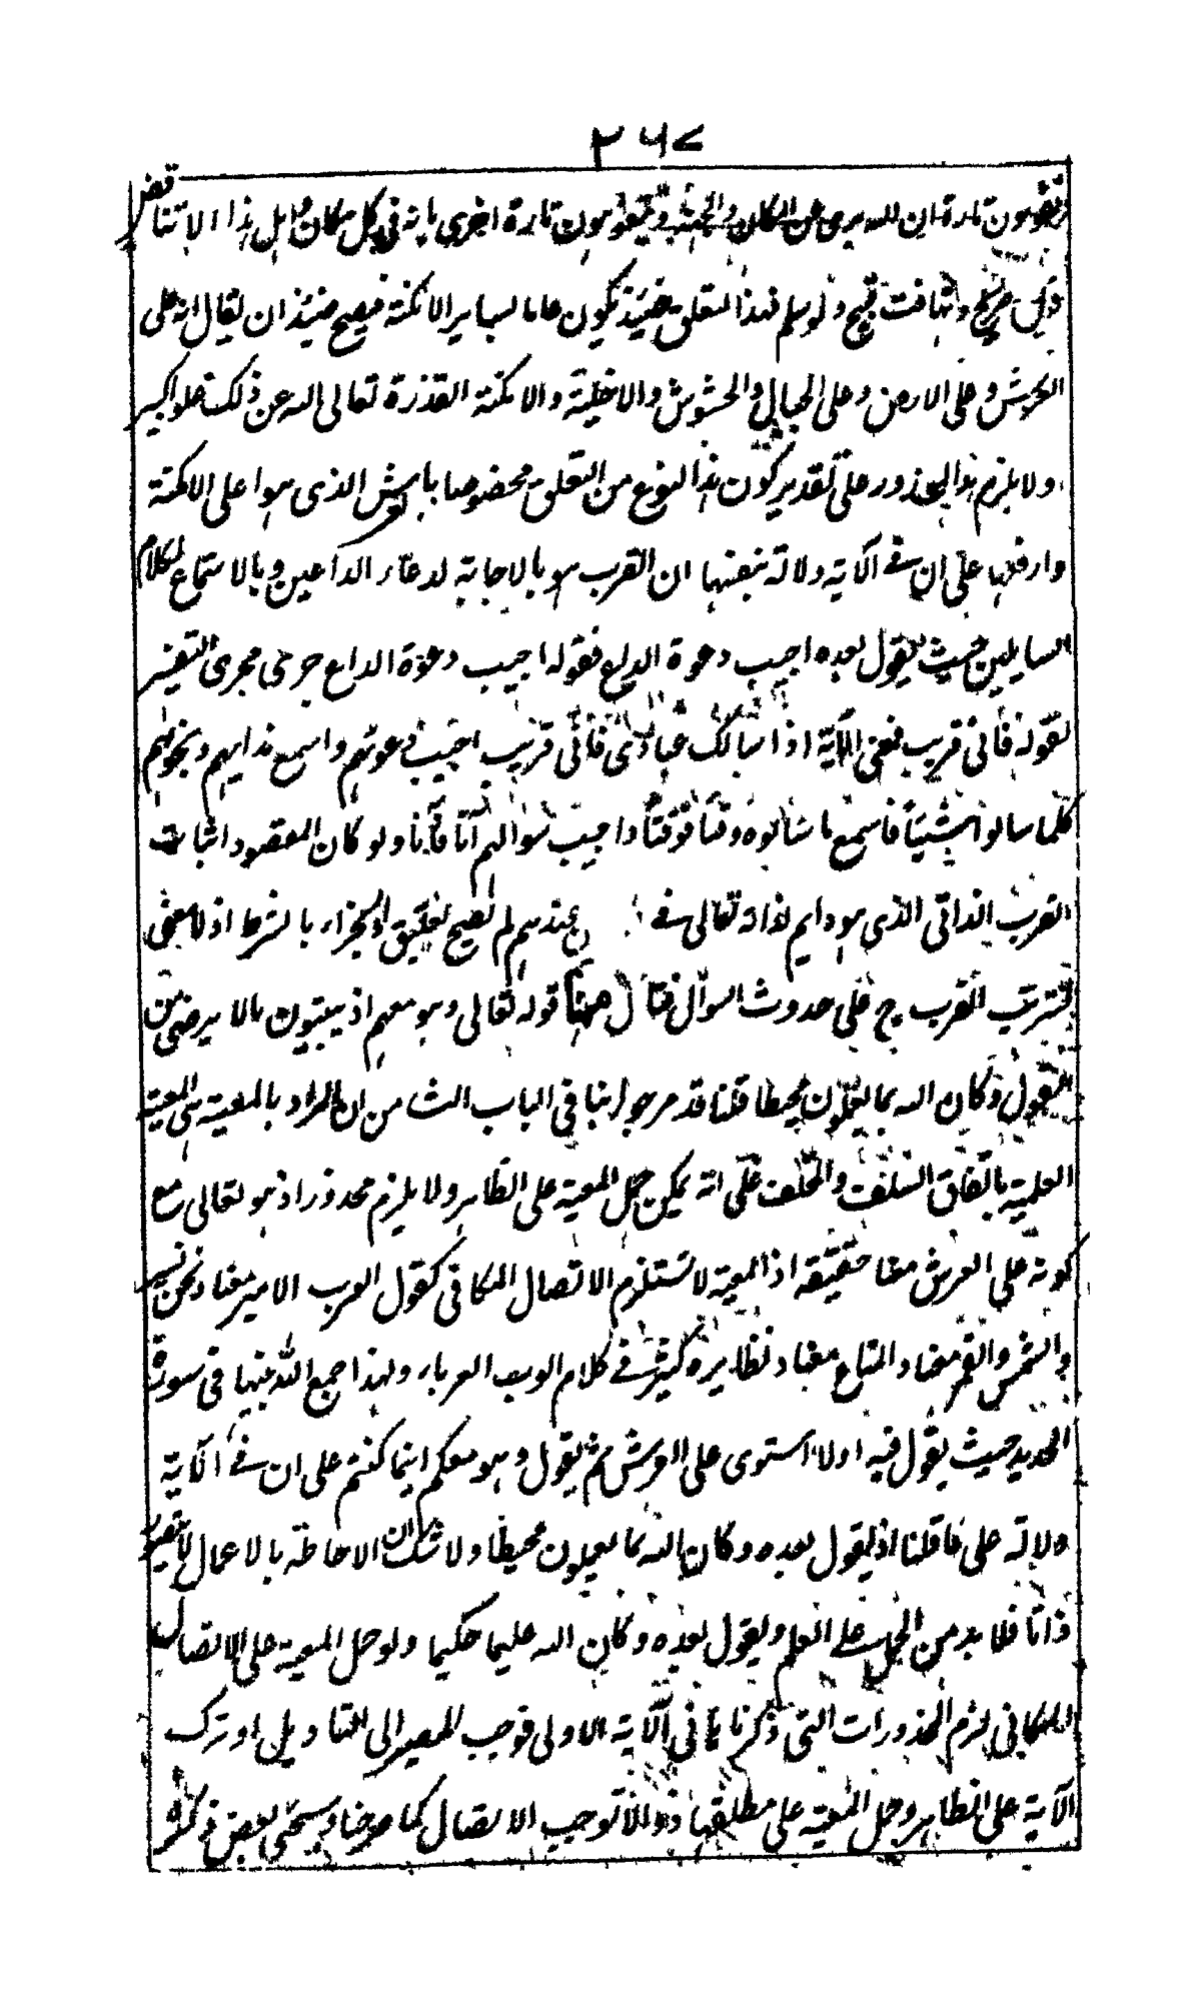 ٢٦٧
فتقولون تارة ان الله برى عن المكان والجهة وتقولون تارة اخرى بانه فى كل مكان هل هذا الا تناقض
صريح وتهافت قبيح ولو سلم فهذا التعلق حينئذ يكون عاما لساير الامكنة فيصح حينئذ ان يقال انه على
العرش وعلى الارض وعلى الجبال والحشوش والاخلية والامكنة القذرة تعالى الله عن ذلك علوا كبيرا
ولا يلزم هذا المحذور على تقدير كون هذا النوع من التعلق مخصوصا بالعرش الذى هو اعلى الامكنة
وارفعها على ان فى الآية دلالة بنفسها ان القرب هو بالاجابة لدعاء الداعين وبالاستماع لكلام
السايلين حيث يقول بعده اجيب دعوة الداع فقوله اجيب دعوة الداع جرى مجرى التفسير
لقوله فانى قريب فمعنى الآية اذا سالك عبادى فانى قريب اجيب دعوتهم واسمع ندايهم ونجواهم
كلما سالوا شيئا فاسمع ما سالوه وقتا فوقتا واجيب سوالهم آنا فآنا ولو كان المقصود اثبات
القرب الذاتى الذى هو دايم لذاته تعالى فى عندهم لم يصح تعليق الجزاء بالشرط اذ لا معنى
لترتب القرب ح على حدوث السوال فتامل ههنا قوله تعالى وهو معهم اذ يبيتون مالا يرضى من
القول وكان الله بما يعملون محيطا قلنا قد مر جوابنا فى الباب الثامن ان المراد بالمعية هى المعية
العلمية باتفاق السلف والخلف على انه يمكن حمل المعية على الظاهر ولا يلزم محذور اذ هو تعالى مع
كونه على العرش معنا حقيقة اذ المعية لا تستلزم الاتصال المكانى كقول العرب الامير معنا ونحن نسير
والشمس والقمر معنا والمتاع معنا ونظايره كثيرة فى كلام العرب العرباء ولهذا جمع الله بينها فى سورة
الحديد حيث يقول فيه اولا استوى على العرش ثم يقول وهو معكم اينما كنتم على ان فى الآية
دلالة على ما قلنا اذ يقول بعده وكان الله بما يعملون محيطا ولا شك ان الاحاطة بالاعمال لا يتصور
ذاتا فلا بد من الحمل على العلم ويقول بعده وكان الله عليما حكيما ولو حمل المعية على الاتصال
المكانى لزم المحذورات التى ذكرناها فى الآية الاولى فوجب المصير الى التاويل او ترك
الآية على الظاهر وحمل المعية على مطلقها لا توجب الاتصال كما صرحنا وسيجئ بعض ذكره